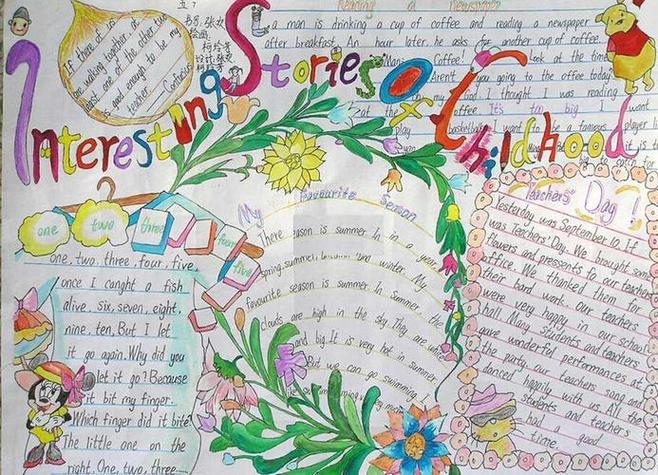 If there at is
are walking together, at
least one of the other two
is good enough to be my
teacher. — Confucius
五?
书写:张文
绘画:
设计:张文
Reading a Newspaper
a man is drinking a cup of coffee and reading a newspaper
after breakfast. An hour later, he asks for another cup of coffee.
Coffee! look at the time
Aren't you going to the office today
my God. I thought I was reading
at the It's too big I want
play basketball. I want to be a famous player
Interesting Stories of Childhood
one two three four five
one, two, three, four, five,
once I caught a fish
alive. six, seven, eight,
nine, ten, But I let
it go again. Why did you
let it go? Because
it bit my finger.
Which finger did it bite?
The little one on the
right. One, two, three—
My Favourite Season
There season is summer. In in a year,
spring, summer, and winter. My
favourite season is summer. In Summer, the
clouds are high in the sky. They are white
and big. It is very hot in summer.
But we can go swimming. I
Teachers' Day!
Yesterday was September 10. It
was Teachers' Day. We brought some
flowers and pressents to our teachers'
office. We thanked them for
their hard work. Our teachers
were very happy in our school
hall. Many students and teachers
gave wonderful performances at
the party. our teachers song and
danced happily with us. All the
students and teachers
had a good
time.